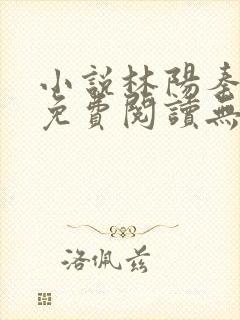 小說林陽秦
免費閱讀無
洛佩兹